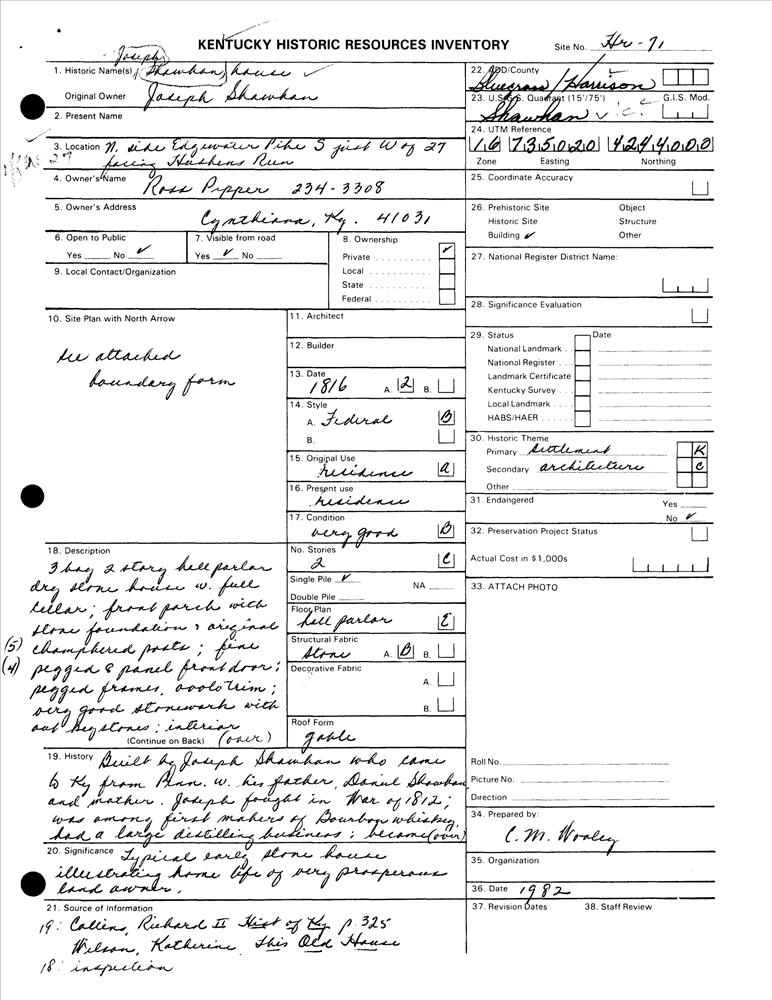 KENTUCKY HISTORIC RESOURCES INVENTORY
Site No. Hr-71
Joseph
1. Historic Name(s) Shawhan house
Original Owner Joseph Shawhan
2. Present Name
3. Location N. side Edgewater Pike S just W of 27
facing Huskens Run
27
4. Owner's Name Ross Pepper 234-3308
5. Owner's Address
Cynthiana, Ky. 41031
6. Open to Public
Yes No ✓
7. Visible from road
Yes ✓ No
8. Ownership
Private ✓
Local
State
Federal
9. Local Contact/Organization
10. Site Plan with North Arrow
see attached
boundary form
11. Architect
12. Builder
13. Date
1816 A. 2 B.
14. Style
A. Federal B
B.
15. Original Use
residense a
16. Present use
residense
17. Condition
very good B
18. Description
3 bay 2 story hall parlor
dry stone house w. full
cellar; front porch with
stone foundation & original
(5) champhered posts; fine
(4) pegged 8 panel front door;
pegged frames, ovolo trim;
very good stonework with
out keystones; interior
(Continue on Back) (over)
No. Stories
2 C
Single Pile ✓ NA
Double Pile
Floor Plan
hall parlor E
Structural Fabric
stone A. B B.
Decorative Fabric
A.
B.
Roof Form
gable
19. History Built by Joseph Shawhan who came
to Ky from Penn. w. his father, Daniel Shawhan
and mother. Joseph fought in War of 1812;
was among first makers of Bourbon whiskey,
had a large distilling business; became (over)
20. Significance Typical early stone house
illustrating home life of very prosperous
land owner.
21. Source of Information
19: Collins, Richard II Hist of Ky p. 325
Wilson, Katherine This Old House
18: inspection
22. ADD/County
Bluegrass/Harrison
23. U.S.G.S. Quadrant (15'/75') G.I.S. Mod.
Shawhan V.C.
24. UTM Reference
16 735020 4244000
Zone Easting Northing
25. Coordinate Accuracy
26. Prehistoric Site Object
Historic Site Structure
Building ✓ Other
27. National Register District Name:
28. Significance Evaluation
29. Status Date
National Landmark
National Register
Landmark Certificate
Kentucky Survey
Local Landmark
HABS/HAER
30. Historic Theme
Primary settlement K
Secondary architecture C
Other
31. Endangered Yes
No ✓
32. Preservation Project Status
Actual Cost in $1,000s
33. ATTACH PHOTO
Roll No.
Picture No.
Direction
34. Prepared by:
C. M. Wooley
35. Organization
36. Date 1982
37. Revision Dates 38. Staff Review